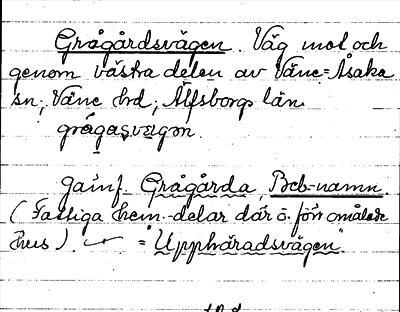 Grågårdsvägen. Väg mot och
genom västra delen av Väne-Åsaka
sn; Väne hrd; Älfsborgs län.
grågasveigən.
Jämf. Grågårda, Beb-namn
(Fattiga hem-delar där o. förr omålade
hus). "Upphäradsvägen".